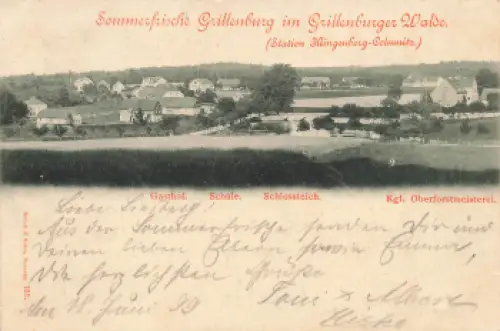 Sommerfrische Grillenburg im Grillenburger Walde.
(Station Klingenberg-Colmnitz.)
Gasthof. Schule. Schlossteich. Kgl. Oberforstmeisterei.
Liebe
Aus der Sommerfrische senden Dir und
Deinen lieben Eltern sowie Emma,
die herzlichsten Grüße
Am 18. Juni 99 Toni &